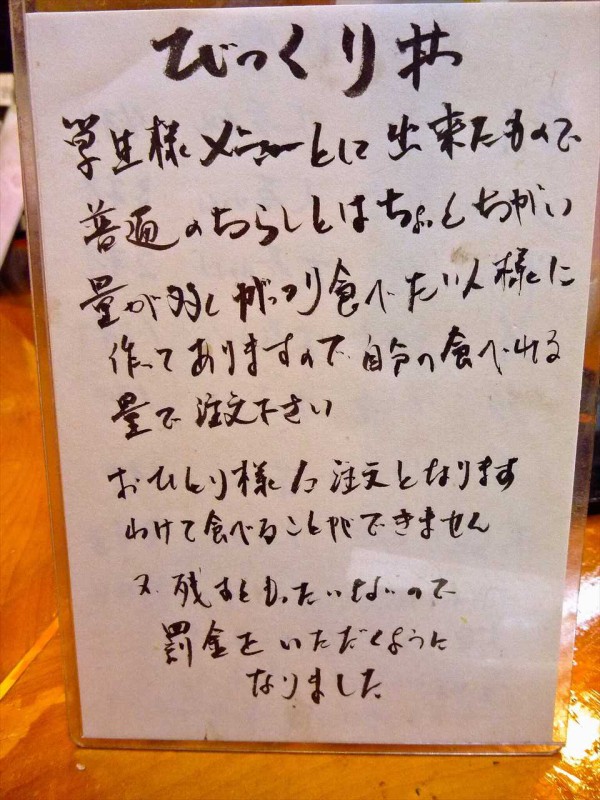 びっくり丼
学生様メニューとして出来たもので
普通のちらしとはちょっとちがい
量が多くがっつり食べたい人様に
作ってありますので自分の食べれる
量で注文下さい
おひとり様1つ注文となります
わけて食べることができません
又残すともったいないので
罰金をいただくように
なりました